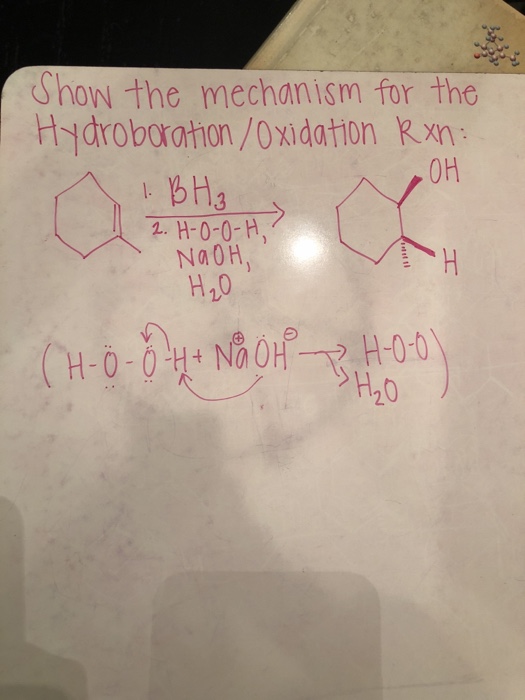 Show the mechanism for the
Hydroboration/Oxidation Rxn:
1. BH₃
2. H-O-O-H,
NaOH,
H₂O
OH
H
(H-Ö-Ö-H + Na⊕ ÖH⊖ → H-O-O)
H₂O